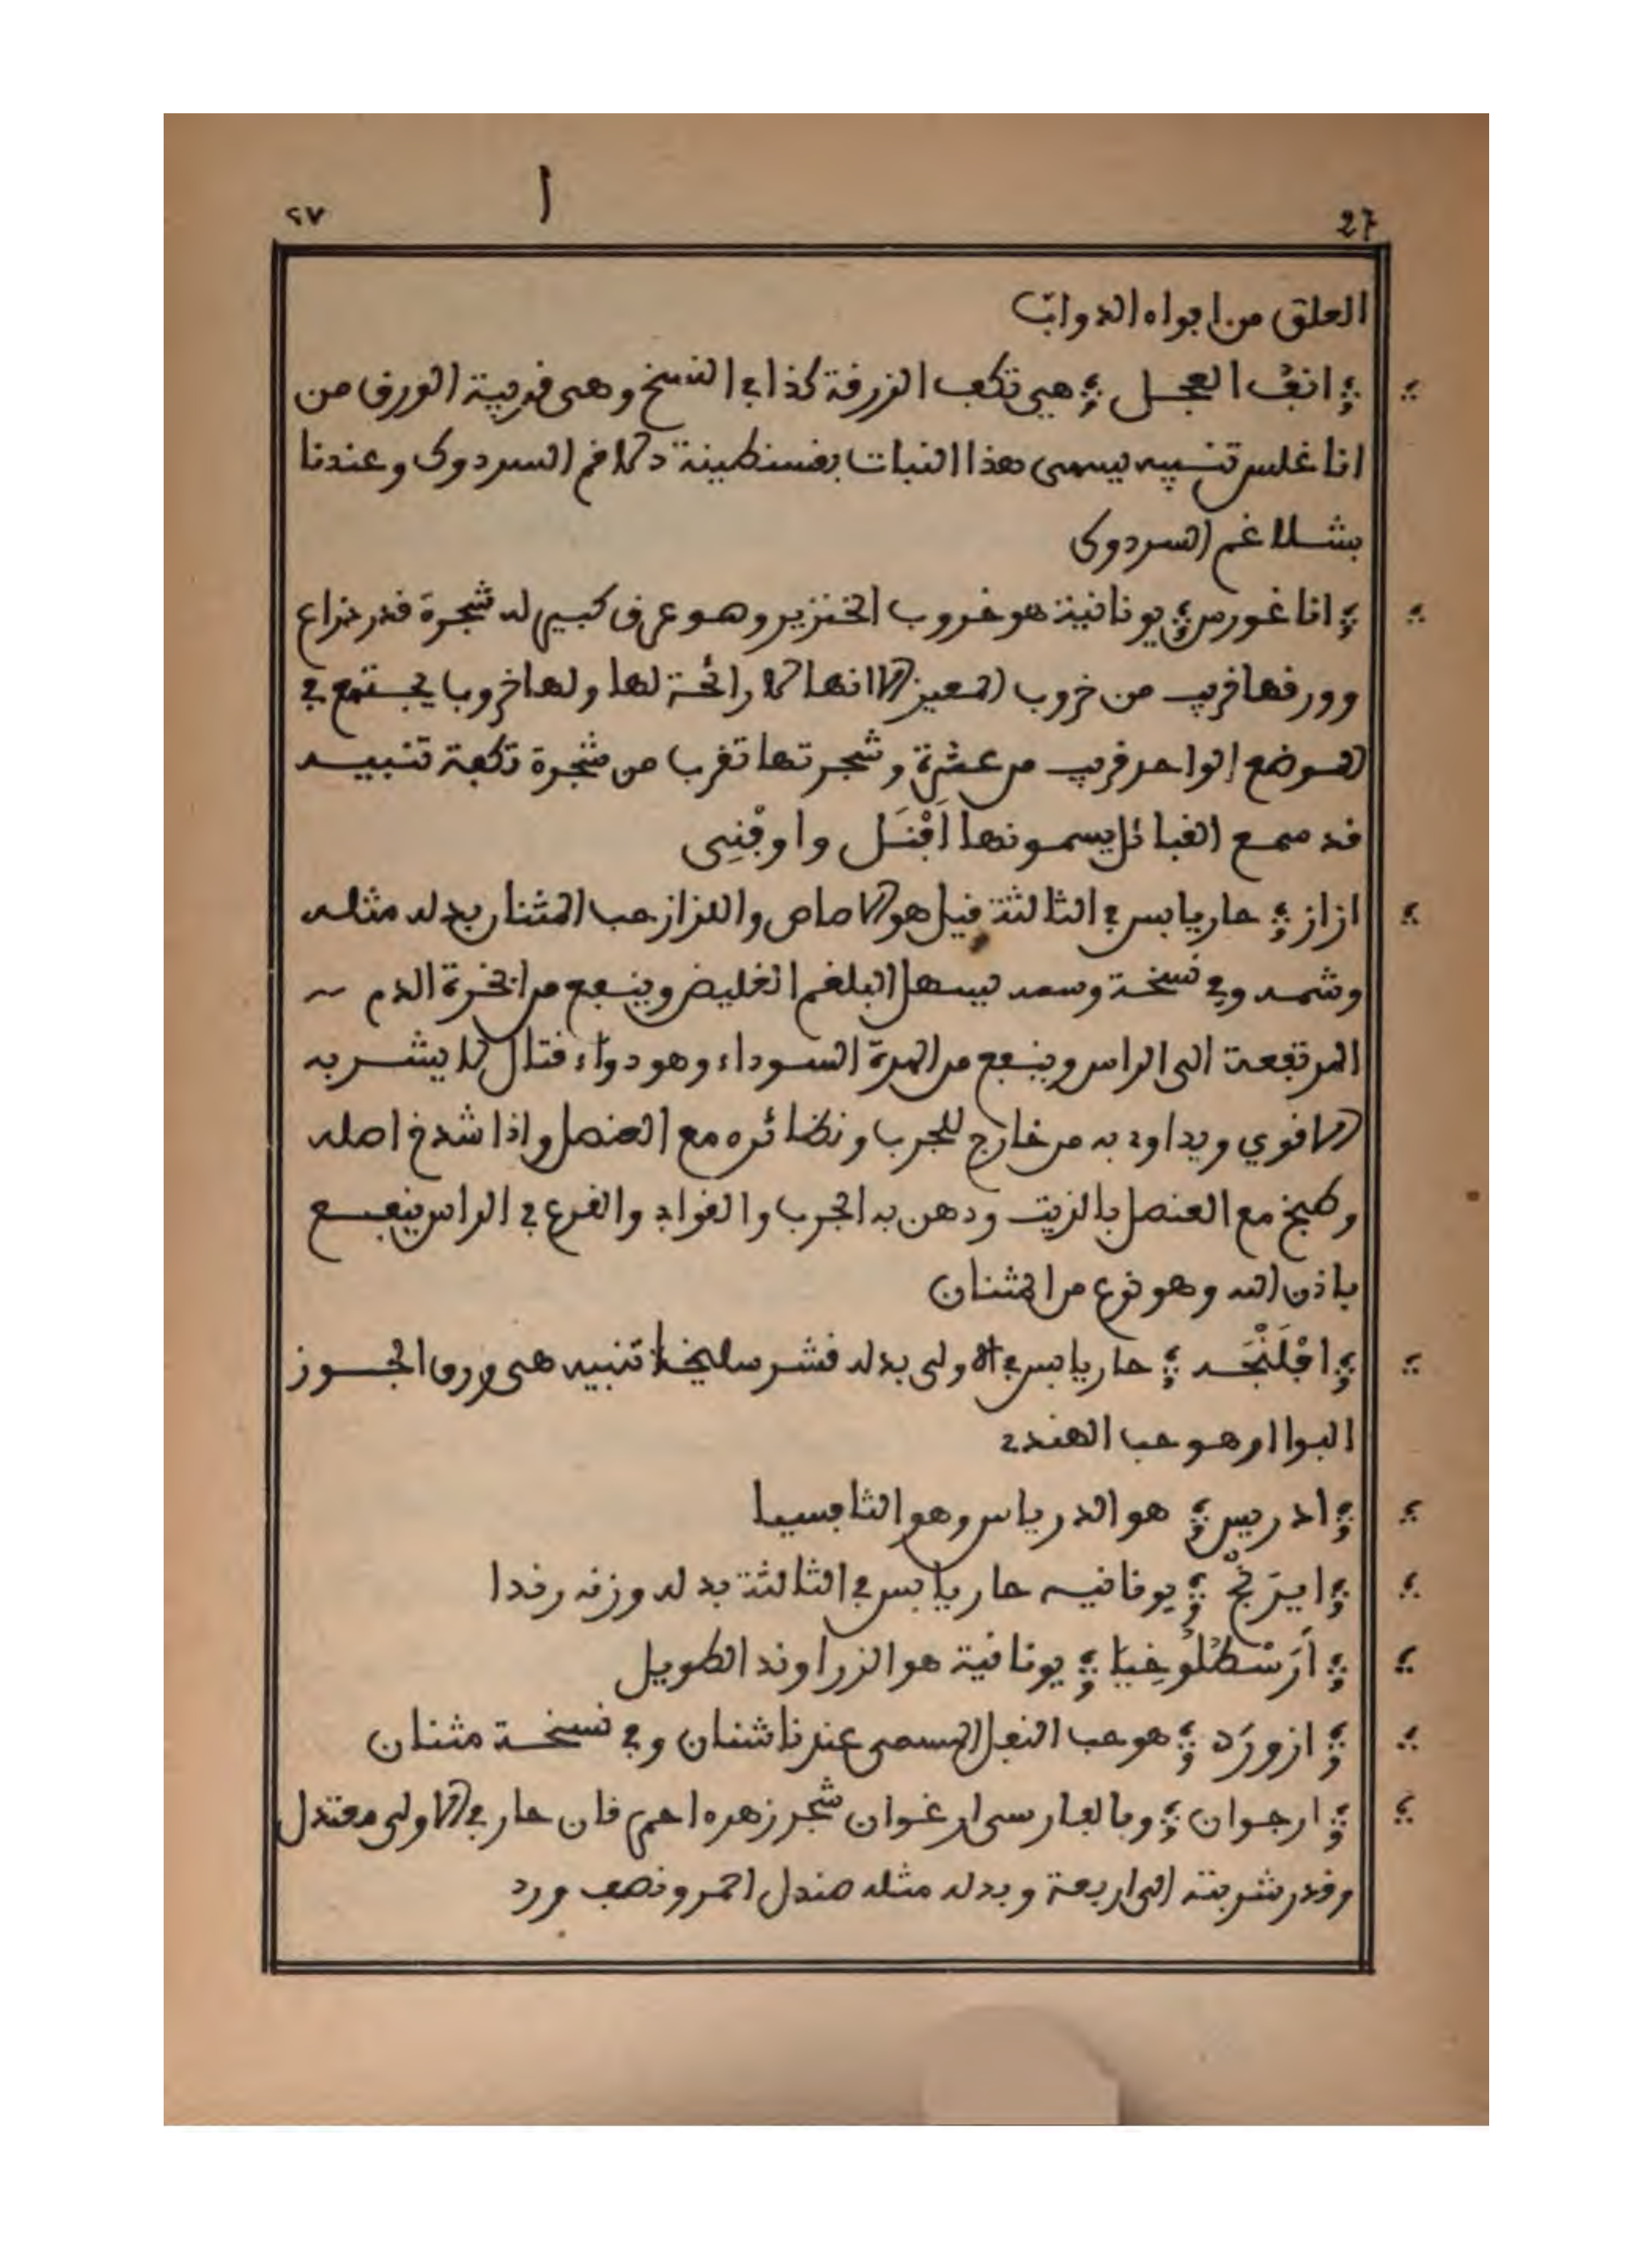 27 ٢٧
ا
العلق من افواه الدواب
انف العجل هي تكعب الزرقة كذا في النسخ وهي قريبة الورق من
انا غلس تنبيه يسمى هذا النبات بقسنطينة دلاغم السردوك وعندنا
بشلاغم السردوك
انا غورس يونانية هو خروب الخنزير وهو عرق كبير له شجرة قدر ذراع
وورقها قريب من خروب المعيز الا انها لا رائحة لها ولها خروب يجتمع في
الموضع الواحد قريب من عشرة وشجرتها تقرب من شجرة تكعة تنبيه
قد سمع القبائل يسمونها افنل واوفني
ازاز حار يابس في الثالثة قيل هو الاصاص والازاز حب المثنان بدله مثله
وشمه وفي نسخة وسعد يسهل البلغم الغليض وينفع من ابخرة الدم
المرتفعة الى الراس وينفع من المرة السوداء وهو دواء قتال لا يشربه
الا قوي ويداوى به من خارج للجرب ونظائره مع العنصل واذا شدخ اصله
وطبخ مع العنصل بالزيت ودهن به الجرب والقواب والقرع في الراس ينفع
باذن الله وهو نوع من المثنان
افلنجه حار يابس في الاولى بدله قشر سليخة تنبيه هي ورق الجوز
البوا او هو حب الهندي
ادريس هو الدرياس وهو الثافسيا
ايرنج يونانيه حار يابس في الثالثة بدله وزنه رندا
ارسطلوخيا يونانية هو الزراوند الطويل
ازورد هو حب النفل المسمى عندنا شنان وفي نسخة مثنان
ارجوان وبالفارسي ارغوان شجر زهره احمر قان حار في الاولى معتدل
وقدر شربته الى اربعة وبدله مثله صندل احمر ونصف ورد